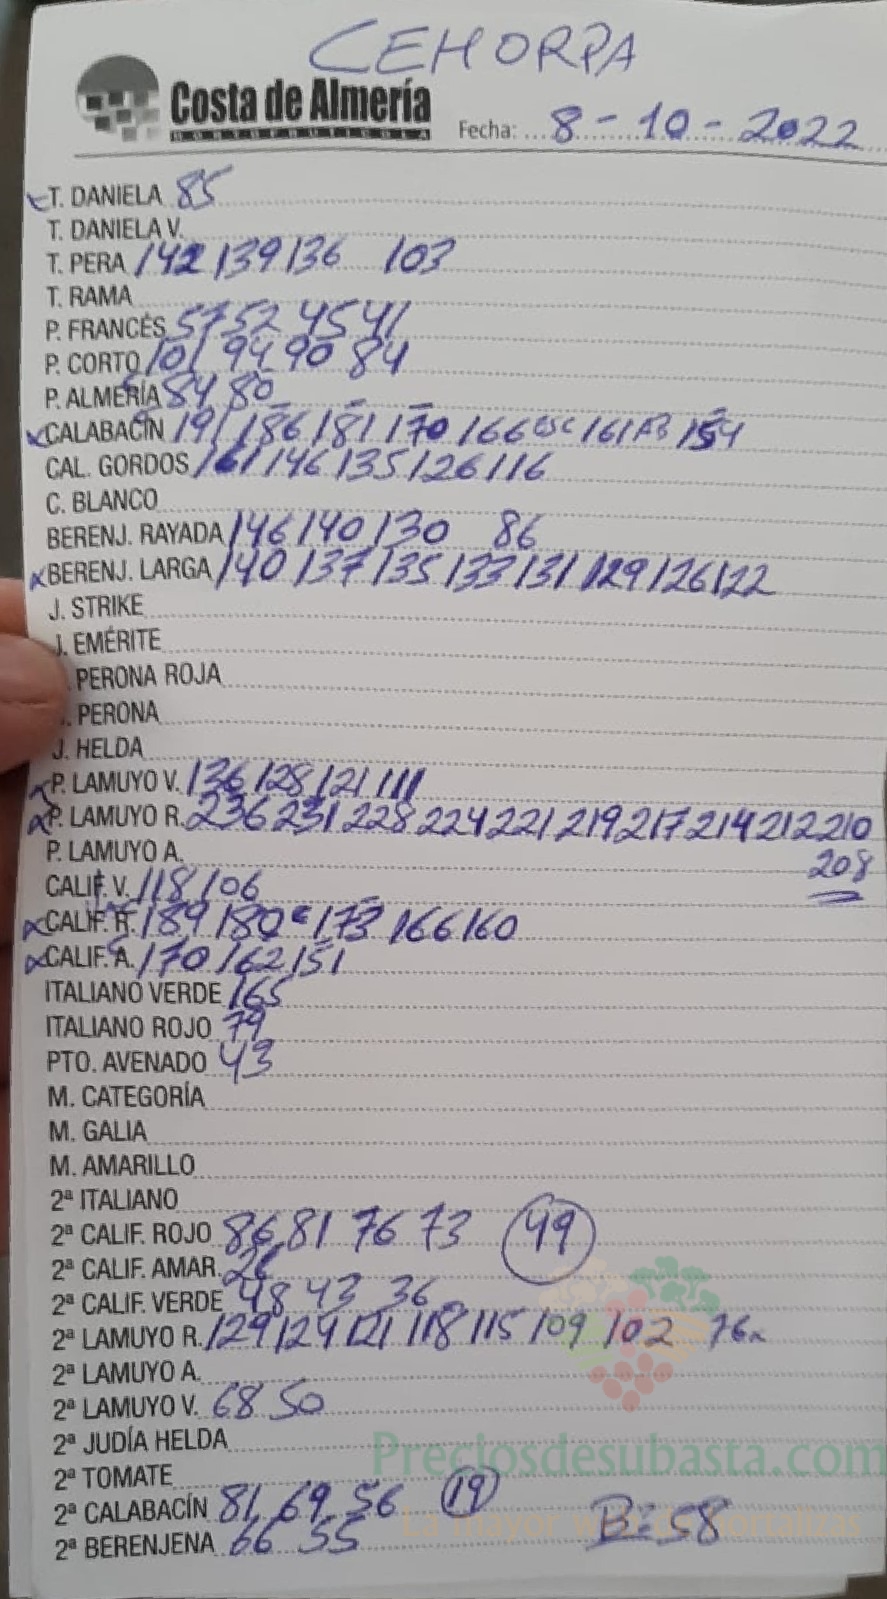 CEHORPA
Costa de Almería
HORTOFRUTICOLA
Fecha: 8-10-2022
T. DANIELA 85
T. DANIELA V.
T. PERA 142 139 136 103
T. RAMA
P. FRANCÉS 57 52 45 41
P. CORTO 101 94 90 84
P. ALMERÍA 84 80
CALABACÍN 191 186 181 170 166 ESC 161 154
CAL. GORDOS 161 146 135 126 116
C. BLANCO
BERENJ. RAYADA 146 140 130 86
BERENJ. LARGA 140 137 135 133 131 129 126 122
J. STRIKE
J. EMÉRITE
PERONA ROJA
PERONA
J. HELDA
P. LAMUYO V. 136 128 121 111
P. LAMUYO R. 236 231 228 224 221 219 217 214 212 210
P. LAMUYO A. 208
CALIF. V. 118 106
CALIF. R. 189 180 173 166 160
CALIF. A. 170 162 151
ITALIANO VERDE 165
ITALIANO ROJO 79
PTO. AVENADO 43
M. CATEGORÍA
M. GALIA
M. AMARILLO
2ª ITALIANO
2ª CALIF. ROJO 86 81 76 73 49
2ª CALIF. AMAR.
2ª CALIF. VERDE 48 43 36
2ª LAMUYO R. 129 124 121 118 115 109 102 76
2ª LAMUYO A.
2ª LAMUYO V. 68 50
2ª JUDÍA HELDA
Preciosdesubasta.com
2ª TOMATE
2ª CALABACÍN 81 69 56 19 B: 58
La mayor web de hortalizas
2ª BERENJENA 66 55